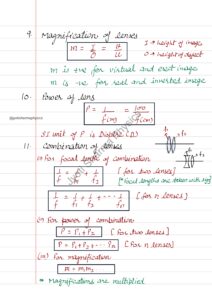 9. Magnification of lenses
m = I/O = v/u
I → height of image
O → height of object
m is +ve for virtual and erect image
m is -ve for real and inverted image
10. Power of lens
P = 1/f(m) = 100/f(cm)
SI unit of P is Dioptre (D)
11. Combination of lenses
(i) For focal length of combination
1/f = 1/f₁ + 1/f₂ [for two lenses]
* [Focal lengths are taken with sign]
1/f = 1/f₁ + 1/f₂ + ... 1/fₙ [for n lenses]
(ii) For power of combination
P = P₁ + P₂ [For two lenses]
P = P₁ + P₂ + ... Pₙ [For n lenses]
(iii) For magnification
m = m₁m₂
* Magnifications are multiplied